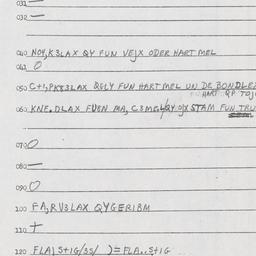 031 —
032 —
040 NOY, K3LAX QY FUN VEJX ODER HART MEL
041 O
050 C+!, PKY3LAX QGLY FUN HART MEL UN DE BONDLE
HART. QP TOJ
060 KNE.DLAX FUEN MA, C3MEL/QY OJX STAM FUN TRU
070 O
080 —
090 O
100 FA,RV3LAX QYGERIBM
110 +
120 FLA| S+IG/3S/ )= FLA..S+IG